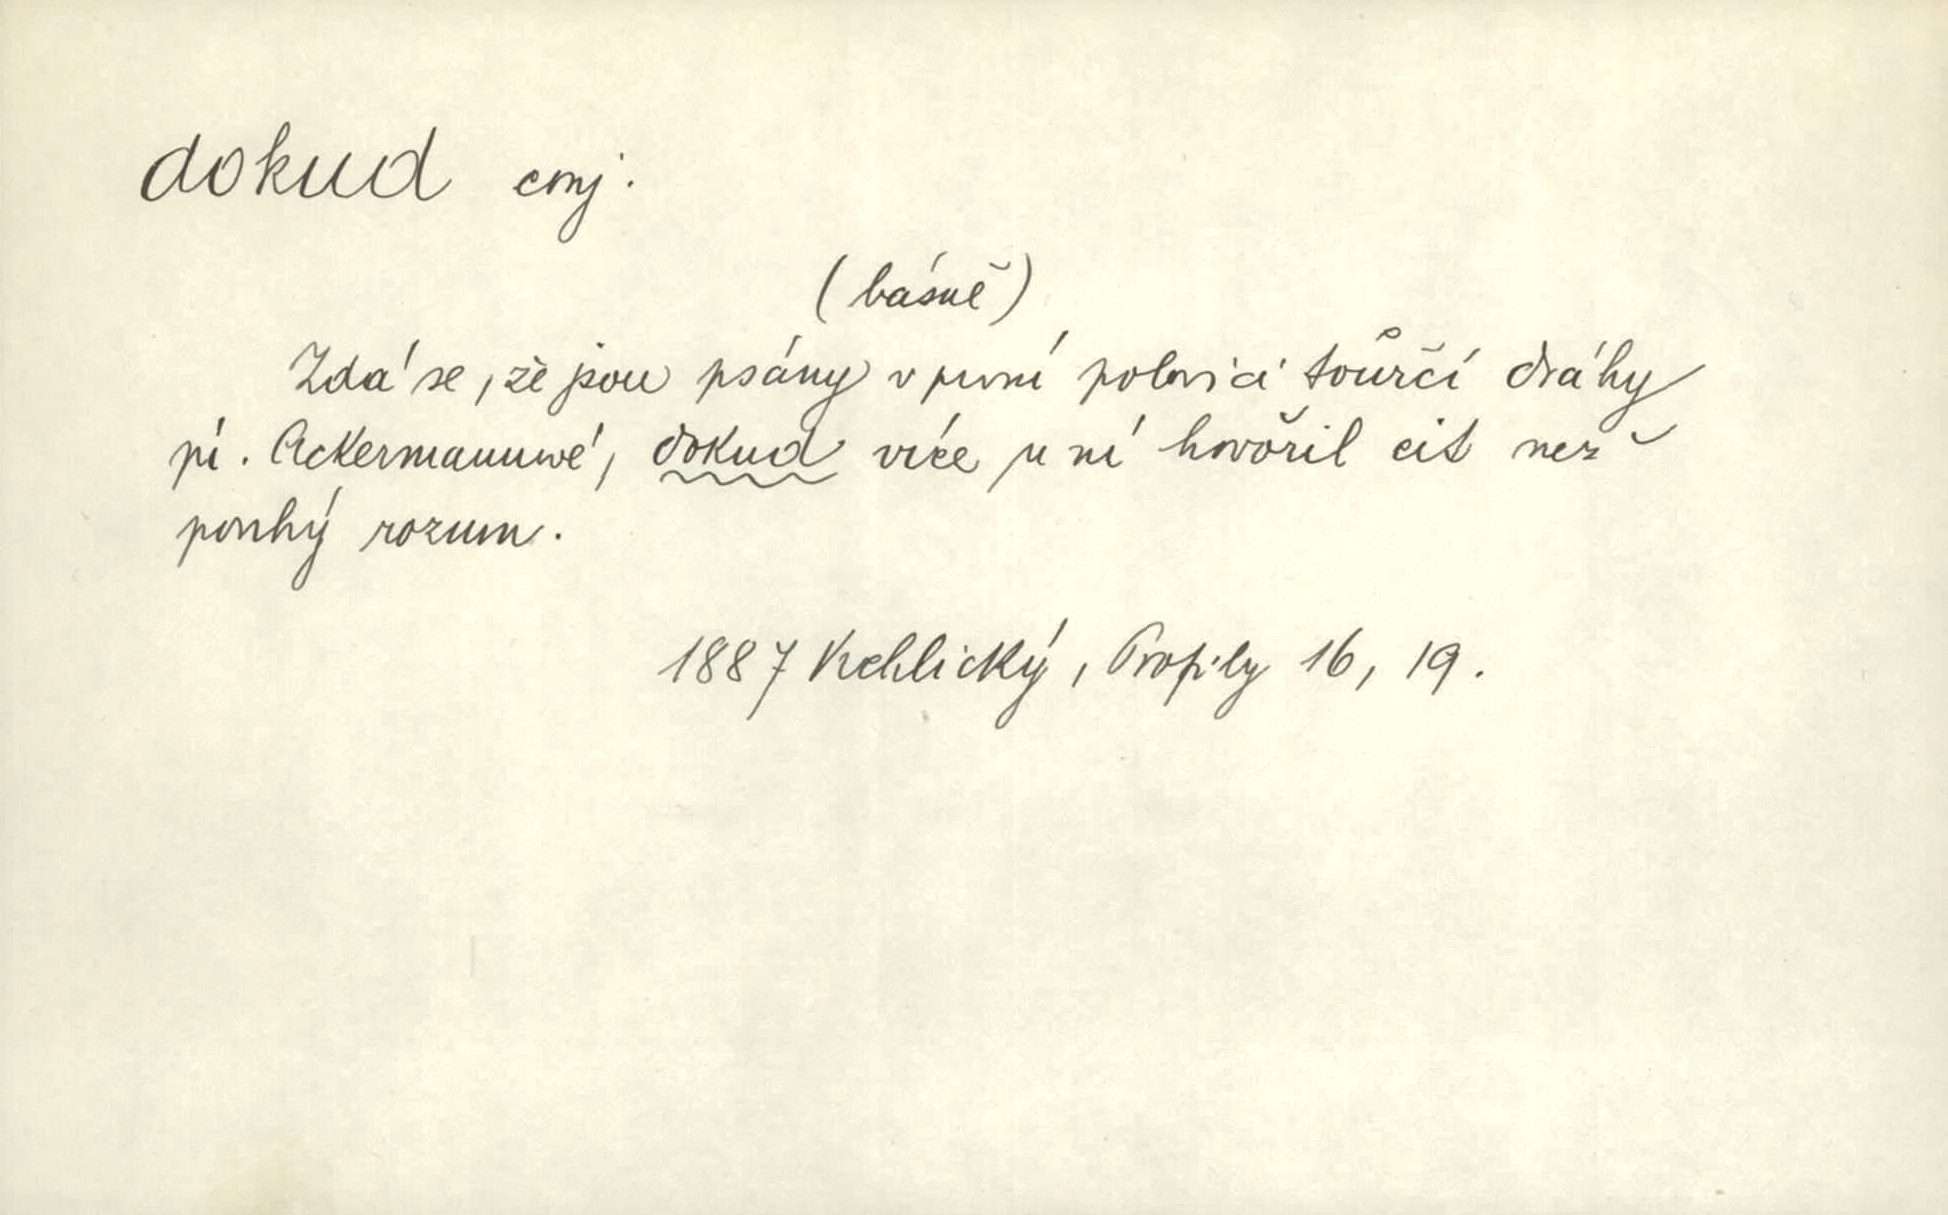 dokud conj.
(básně)
Zdá se, že jsou psány v první polovici tvůrčí dráhy
pí. Ackermannové, dokud více u ní hovořil cit než
pouhý rozum.
1887 Vrchlický, Profily 16, 19.